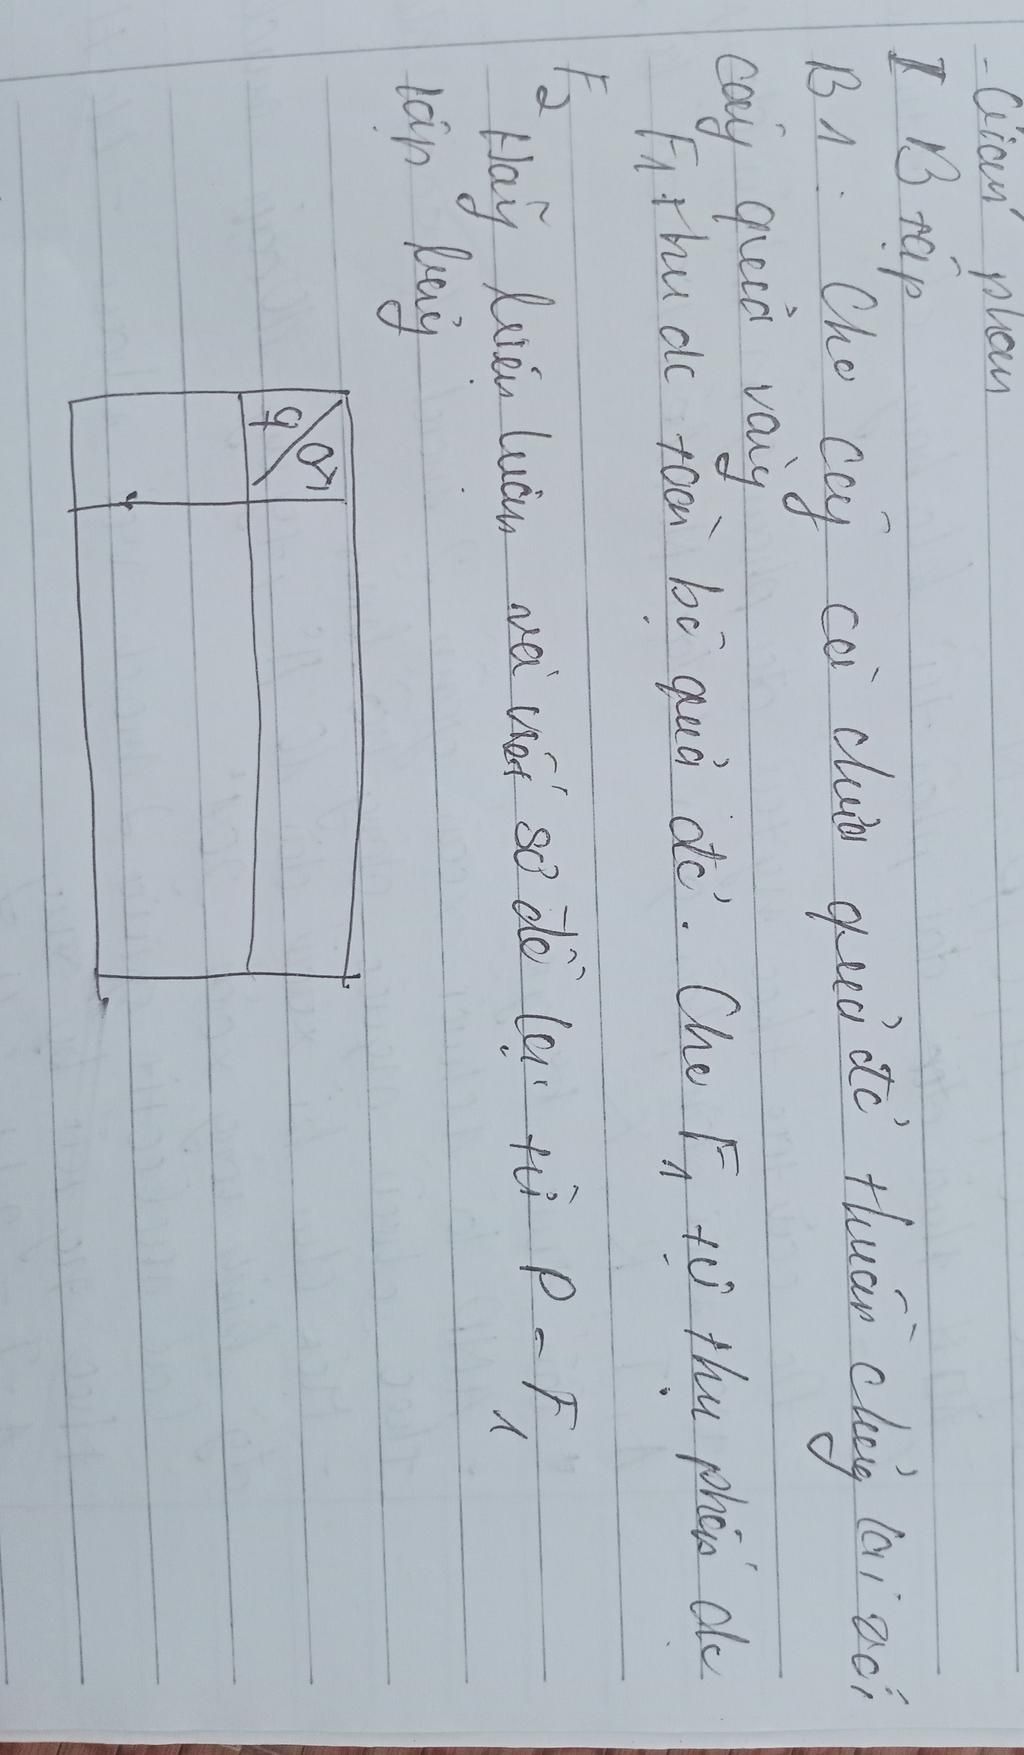 - Giảm phân
I B tập
B1. Cho cây cà chua quả đỏ thuần chủng lai với
cây quả vàng
F1 thu đc toàn bộ quả đỏ. Cho F1 tự thụ phấn đc
F2
Hãy biện luận và viết sơ đồ lai từ P - F1
lập bảng
♀ ♂